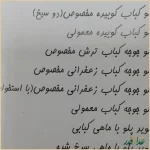 و کباب کوبیده مفصوص(دو سیخ)
و کباب کوبیده معمولی
و جوجه کباب ترش مفصوص
و جوجه کباب زعفرانی مفصوص
و جوجه کباب زعفرانی مفصوص(با استخوا
و جوجه کباب معمولی
وید پلو با ماهی کبابی
وید پلو با ماهی سرخ شده